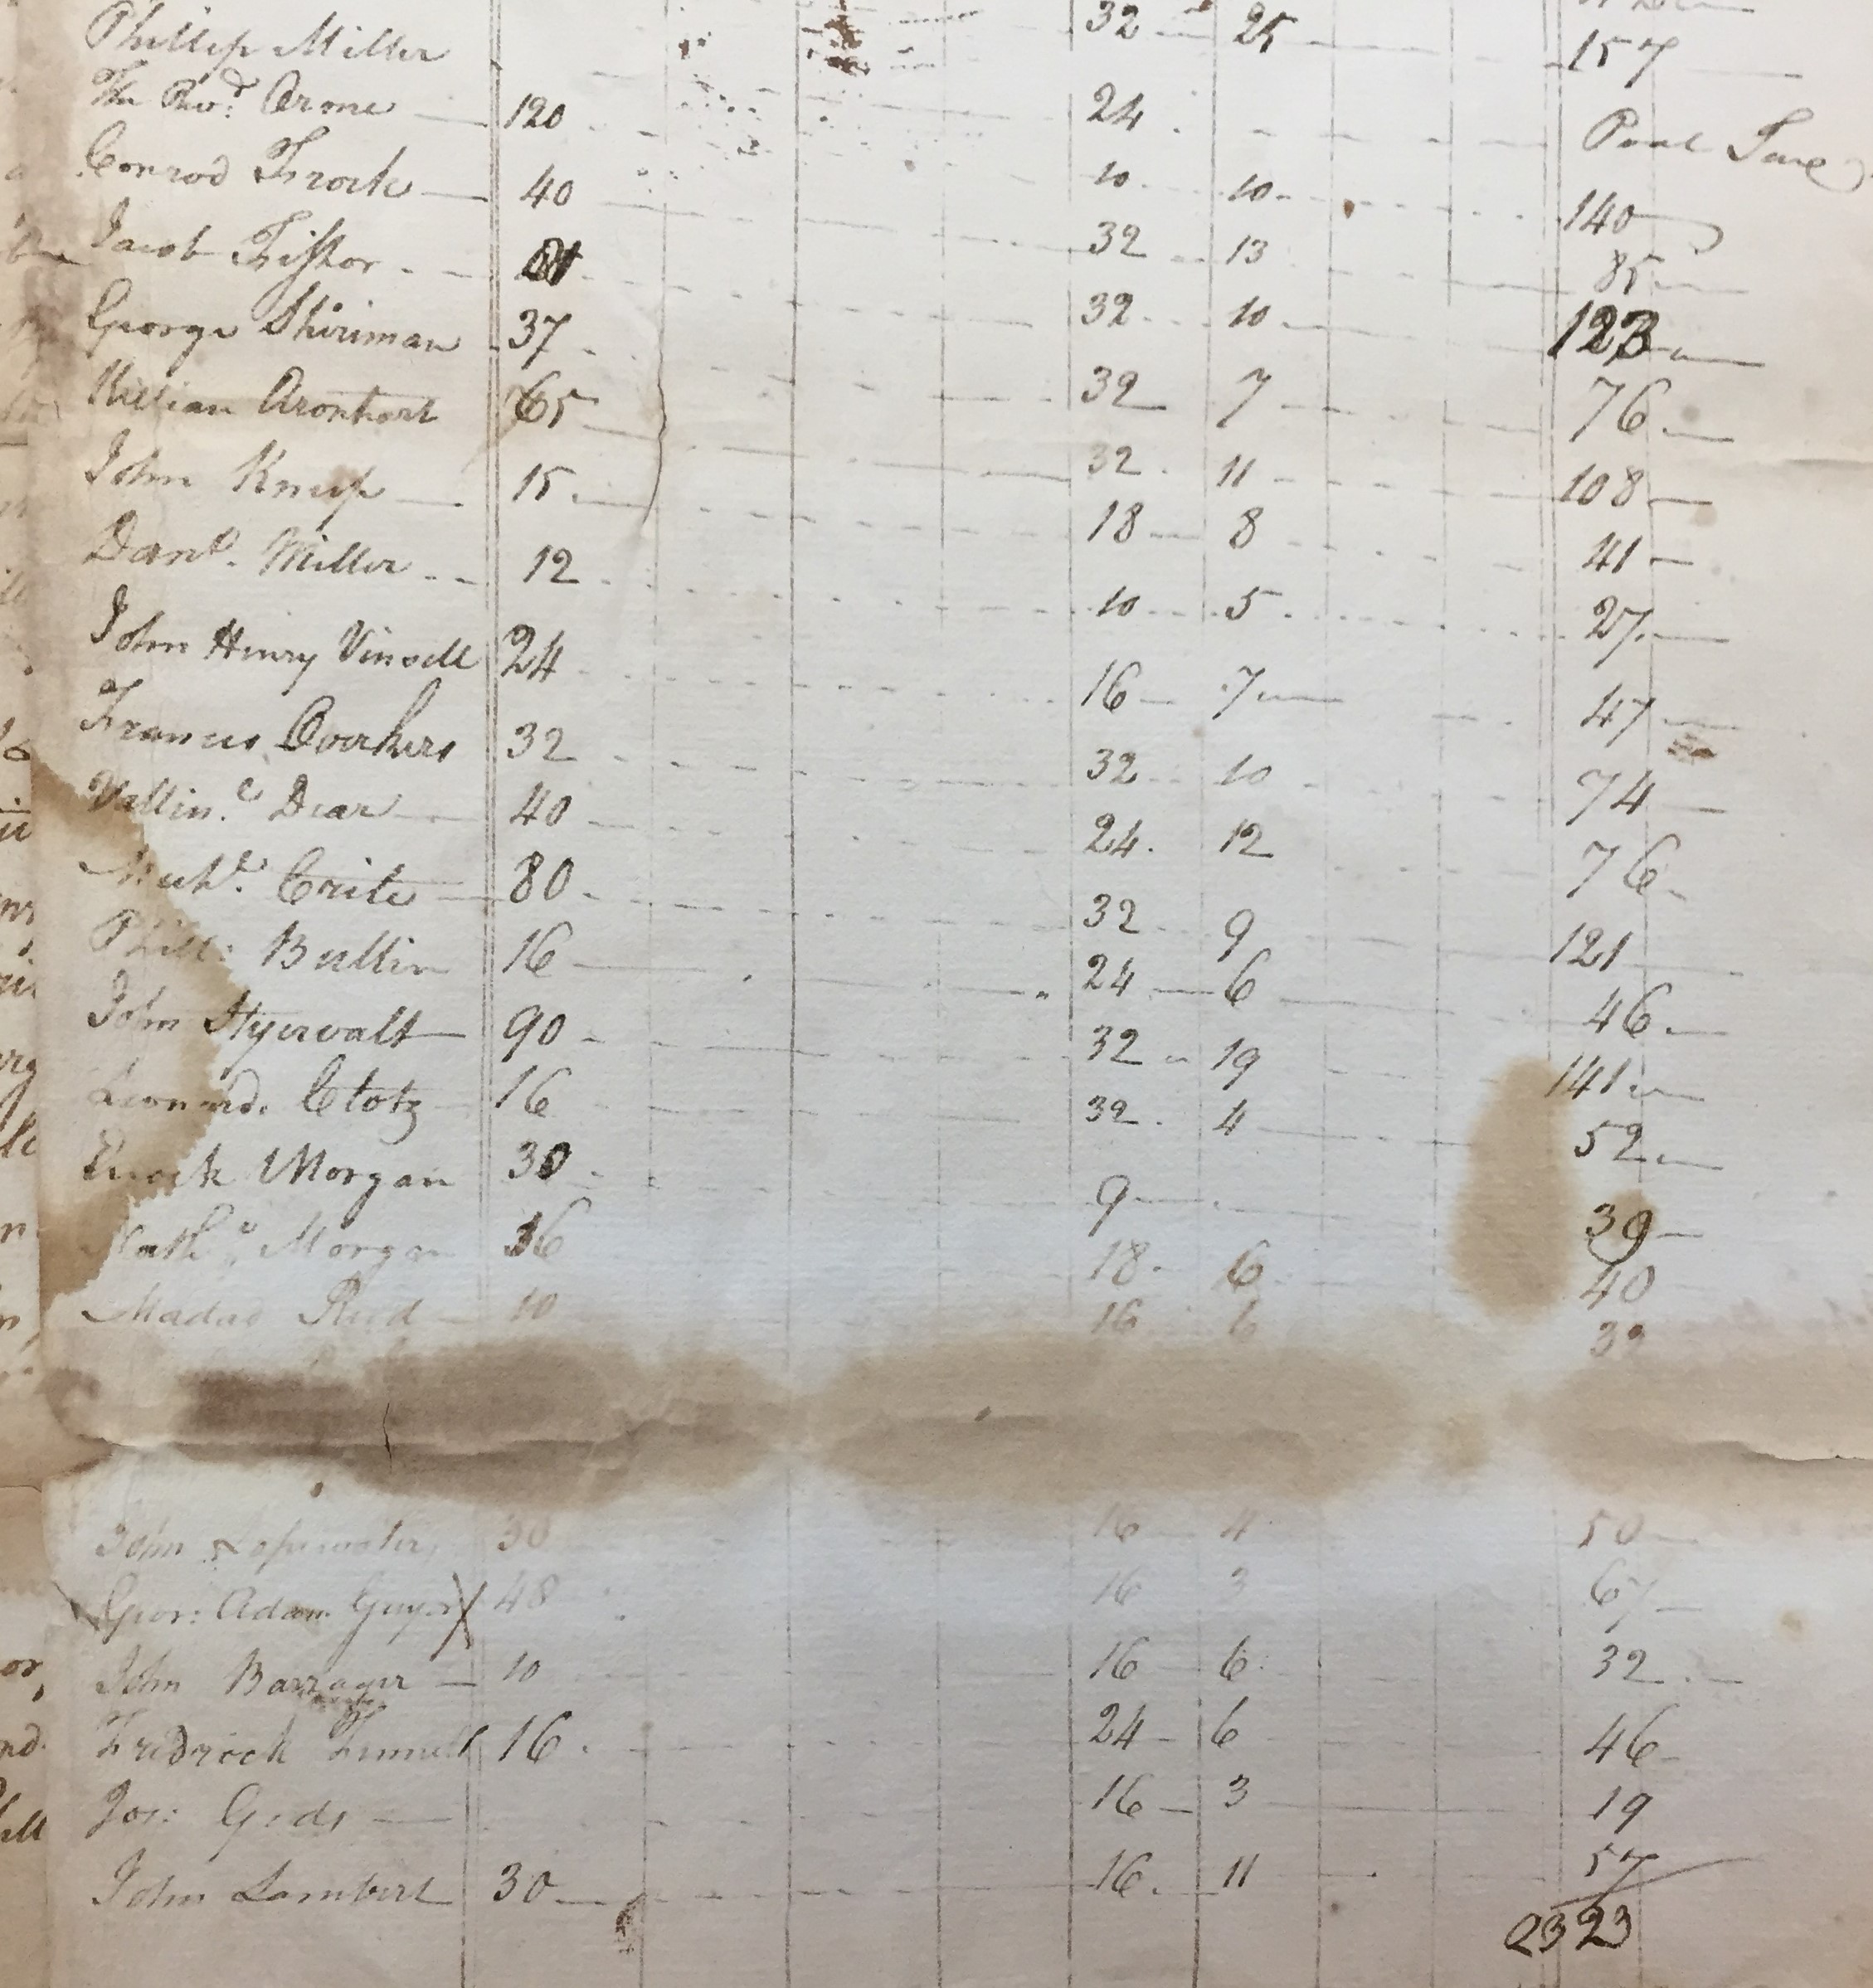 Phillip Miller 32 25 157
The Revd. Crone 120 24 Poul Tax
Conrod Frock 40 10 10 140
Jacob Fisher 32 13 85
George Shiriman 37 32 10 123
Killian Aronhart 65 32 7 76
John Knup 15 32 11 108
Danl. Miller 12 18 8 41
John Henry Vinsell 24 10 5 27
Francis Overkers 32 16 7 47
Vallin.e Dear 40 32 10 74
Crite 80 24 12 76
Phill: Bullin 16 32 9 121
John Hyerwalt 90 24 6 46
Leonard Clotz 16 32 19 141
Enock Morgan 30 32 4 52
Morgan 36 9 39
Madad Reed 10 18 6 40
16 6 32
John 30 16 4 50
Geor: Adam Guyer 48 16 3 67
John Barrager 10 16 6 32
Fredrock 16 24 6 46
Jos: Gods 16 3 19
John Lambert 30 16 11 57
2323